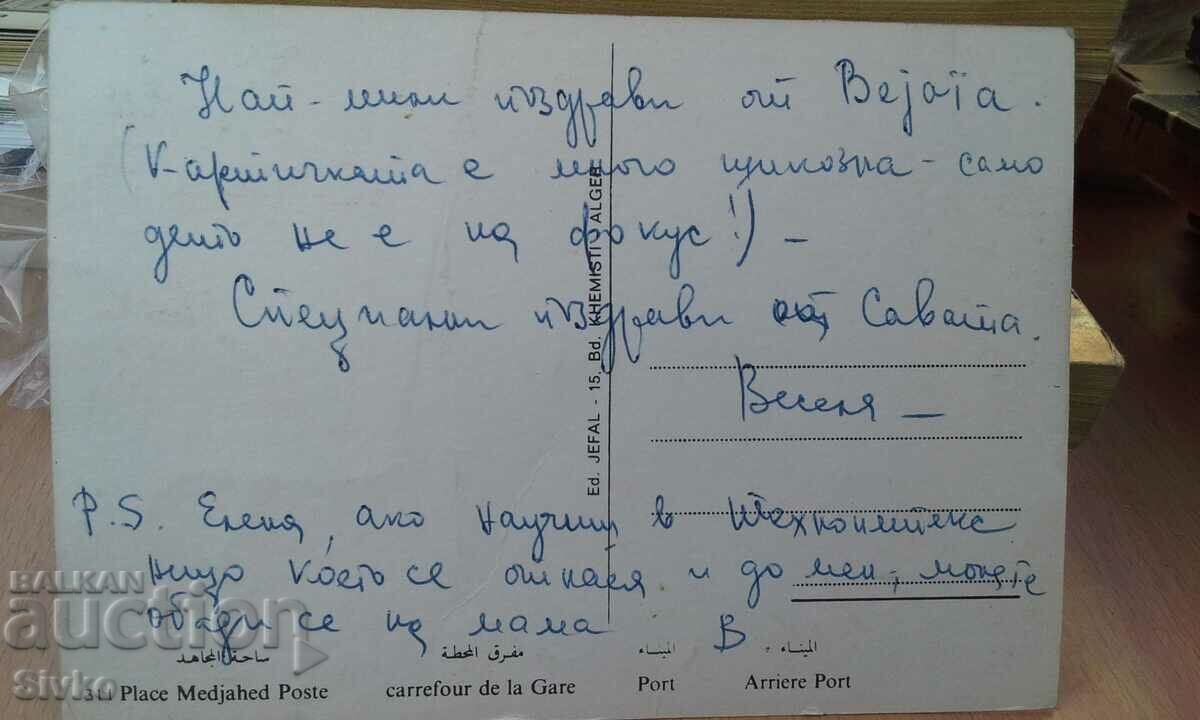 Най-мили поздрави от Bejaïa.
(Картичката е много шикозна - само
дето не е на фокус!) -
Специални поздрави от Савата.
Весеня -
P.S. Елена, ако научиш в Техноимпекс
нищо което се отнася и до мен, моля те
обади се на мама В.
Ed. JEFAL - 15, Bd. KHEMISTI - ALGER
ساحة المجاهد
مفرق المحطة
الميناء
الميناء
311 Place Medjahed Poste
carrefour de la Gare
Port
Arriere Port
BALKAN
auction
Sivko